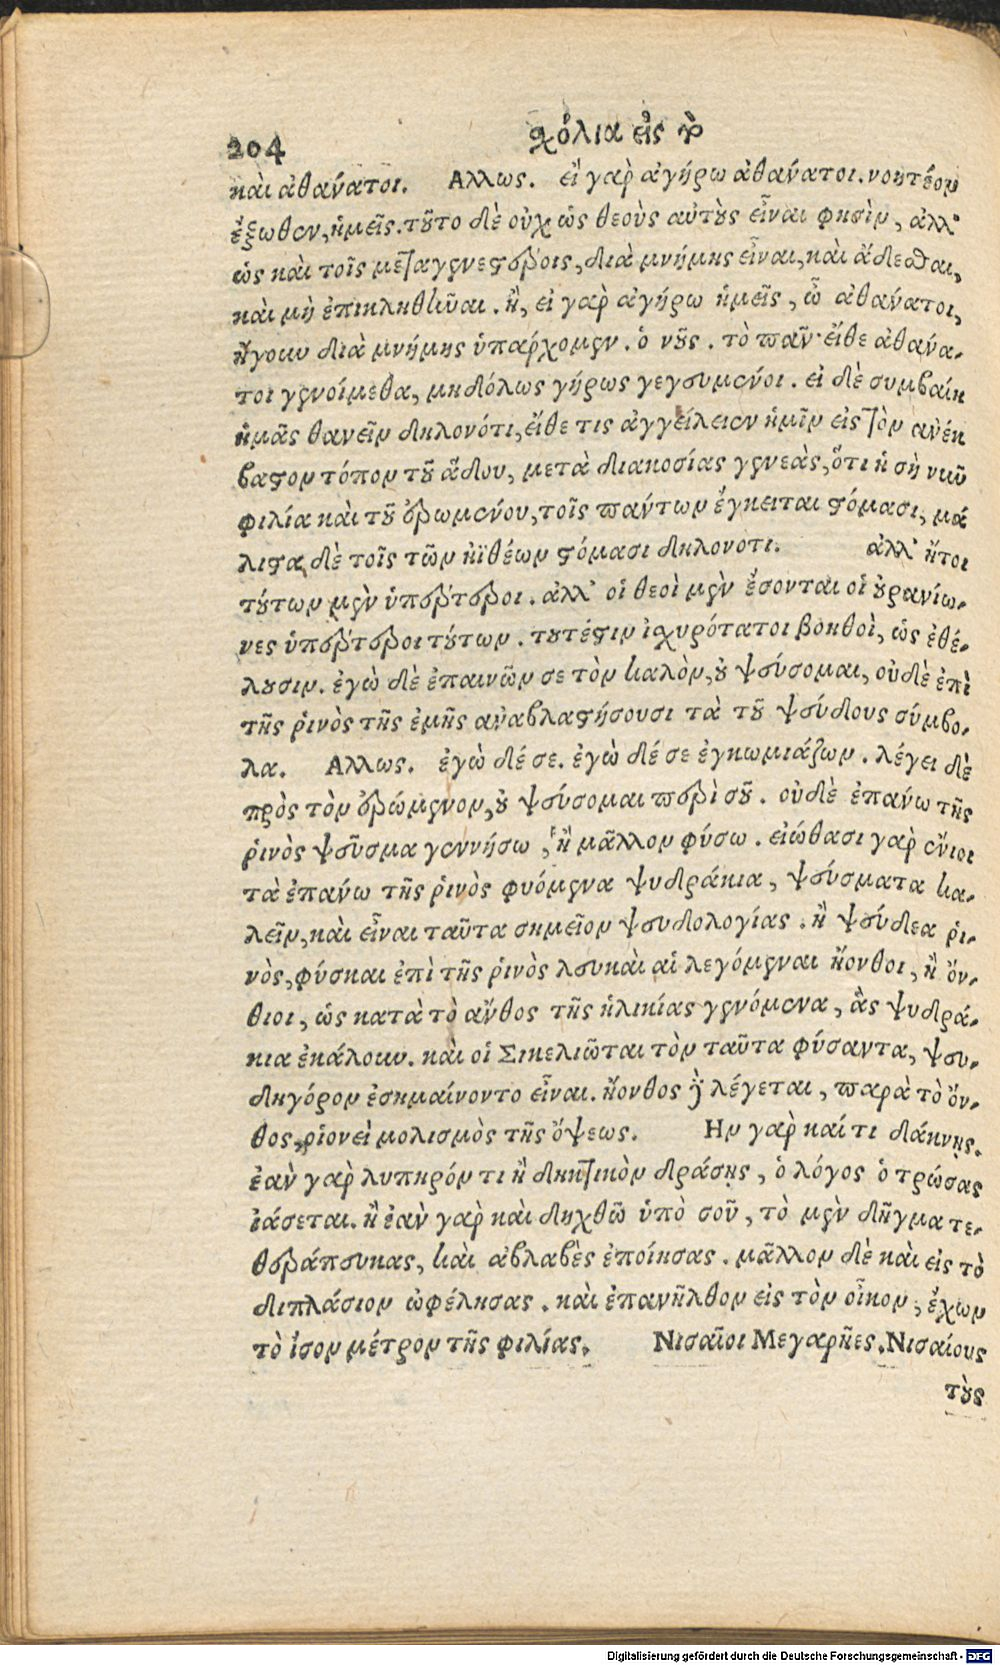 204
σχόλια εἰς τὸ
καὶ ἀθάνατοι. Αλλως. εἴ γαρ ἀγήρω ἀθάνατοι. νοητέον
ἔξωθεν, ἡμεῖς. τοῦτο δὲ οὐχ ὡς θεοὺς αὐτοὺς εἶναι φησὶν, ἀλλ'
ὡς καὶ τοῖς μεταγενεστέροις, διὰ μνήμης εἶναι, καὶ ἄδεσθαι,
καὶ μὴ ἐπικληθῆναι. ἢ, εἰ γαρ ἀγήρω ἡμεῖς, ὦ ἀθάνατοι,
ἤγουν διὰ μνήμης ὑπάρχομεν. ὁ νοῦς. τὸ πᾶν· εἴθε ἀθάνα-
τοι γενοίμεθα, μηδόλως γήρως γευσυμένοι. εἰ δὲ συμβαίη
ἡμᾶς θανεῖν δηλονότι, εἴθε τις ἀγγείλειεν ἡμῖν εἰς τὸν ἀνέκ
βατον τόπον τοῦ ἅδου, μετὰ διακοσίας γενεὰς, ὅτι ἡ σὴ νῦν
φιλία καὶ τοῦ ἐρωμένου, τοῖς πάντων ἔγκειται στόμασι, μά
λιστα δὲ τοῖς τῶν ἠϊθέων στόμασι δηλονοτι. ἀλλ' ἤτοι
τούτων μὲν ὑπέρτεροι. ἀλλ' οἱ θεοὶ μὲν ἔσονται οἱ οὐρανίω-
νες ὑπέρτεροι τούτων. τουτέστιν ἰσχυρότατοι βοηθοὶ, ὡς ἐθέ-
λουσιν. ἐγὼ δὲ ἐπαινῶν σε τὸν καλὸν, οὐ ψεύσομαι, οὐδὲ ἐπὶ
τῆς ῥινὸς τῆς ἐμῆς ἀναβλαστήσουσι τὰ τοῦ ψεύδους σύμβο-
λα. Αλλως. ἐγὼ δέ σε. ἐγὼ δέ σε ἐγκωμιάζων. λέγει δὲ
πρὸς τὸν ἐρώμενον, οὐ ψεύσομαι περὶ σοῦ. οὐδὲ ἐπάνω τῆς
ῥινὸς ψεῦσμα γεννήσω, ἢ μᾶλλον φύσω. εἰώθασι γαρ ἔνιοι
τὰ ἐπάνω τῆς ῥινὸς φυόμενα ψυδράκια, ψεύσματα κα-
λεῖν, καὶ εἶναι ταῦτα σημεῖον ψευδολογίας. ἢ ψεύδεα ῥι-
νὸς, φύσκαι ἐπὶ τῆς ῥινὸς λευκαὶ αἱ λεγόμεναι ἤονθοι, ἢ ὄν-
θιοι, ὡς κατὰ τὸ ἄνθος τῆς ἡλικίας γενόμενα, ἃς ψυδρά-
κια ἐκάλουν. καὶ οἱ Σικελιῶται τὸν ταῦτα φύσαντα, ψευ-
δηγόρον ἐσημαίνοντο εἶναι. ἤονθος δὲ λέγεται, παρὰ τὸ ὄν-
θος, οἱονεὶ μολισμὸς τῆς ὄψεως. Ην γαρ καί τι δάκνῃς.
ἐὰν γαρ λυπηρόν τι ἢ δηκτικὸν δράσῃς, ὁ λόγος ὁ τρώσας
ἰάσεται. ἢ ἐὰν γαρ καὶ δηχθῶ ὑπὸ σοῦ, τὸ μὲν δῆγμα τε-
θεράπευκας, καὶ ἀβλαβὲς ἐποίησας. μᾶλλον δὲ καὶ εἰς τὸ
διπλάσιον ὠφέλησας. καὶ ἐπανῆλθον εἰς τὸν οἶκον, ἔχων
τὸ ἴσον μέτρον τῆς φιλίας. Νισαῖοι Μεγαρῆες. Νισαίους
τοὺς
Digitalisierung gefördert durch die Deutsche Forschungsgemeinschaft - DFG